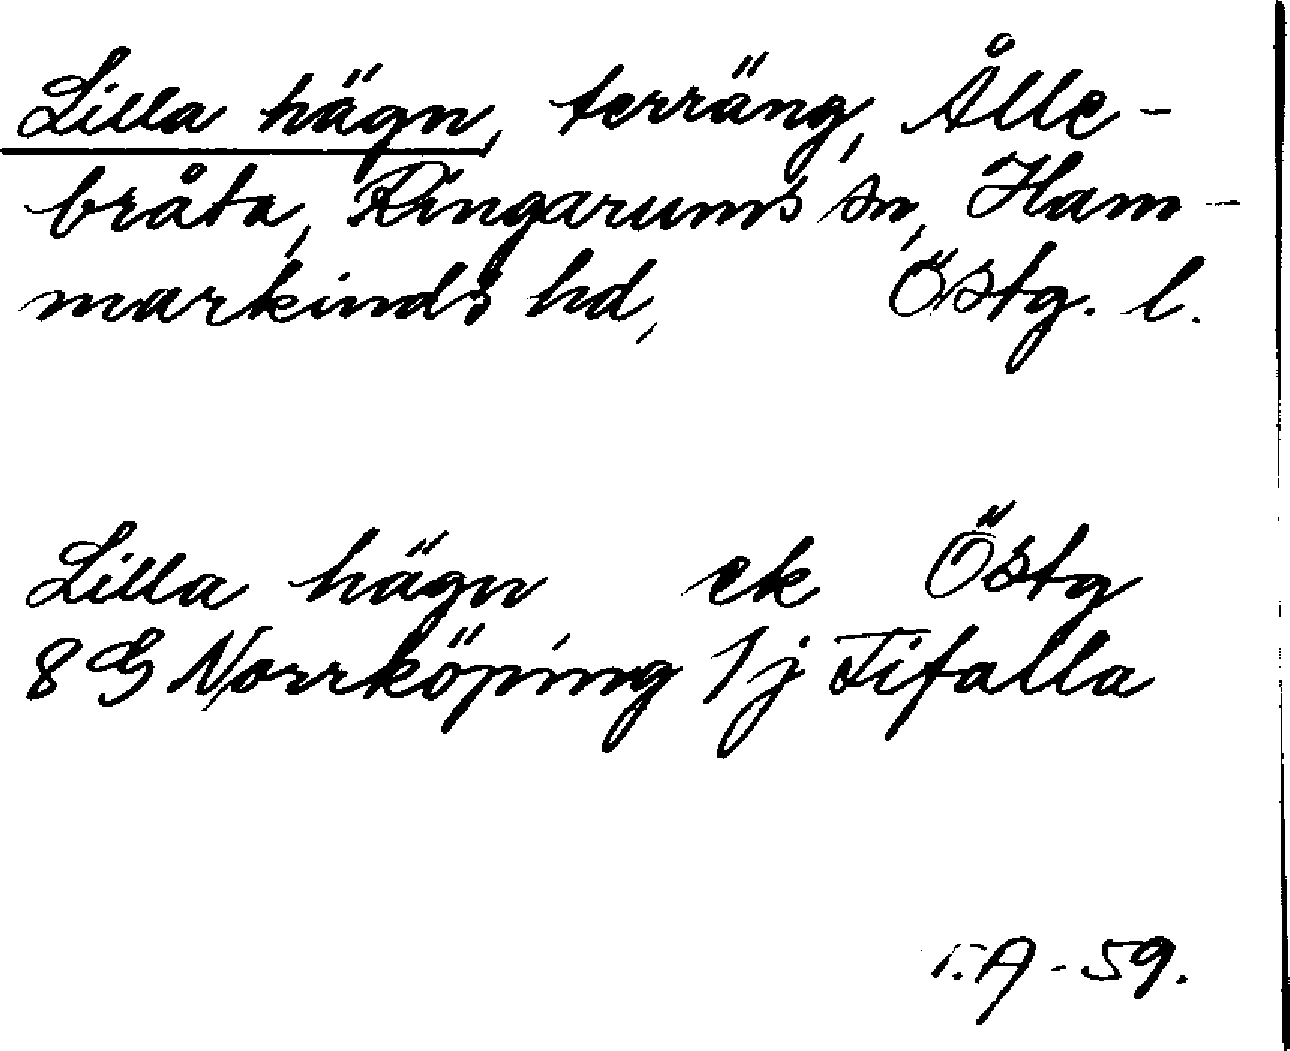 Lilla hägn, terräng, Ålle-
bråta, Ringarums sn, Ham-
markinds hd, Östg. l.
Lilla hägn ek Östg
8 G Norrköping 1j Tifalla
T.A-59.